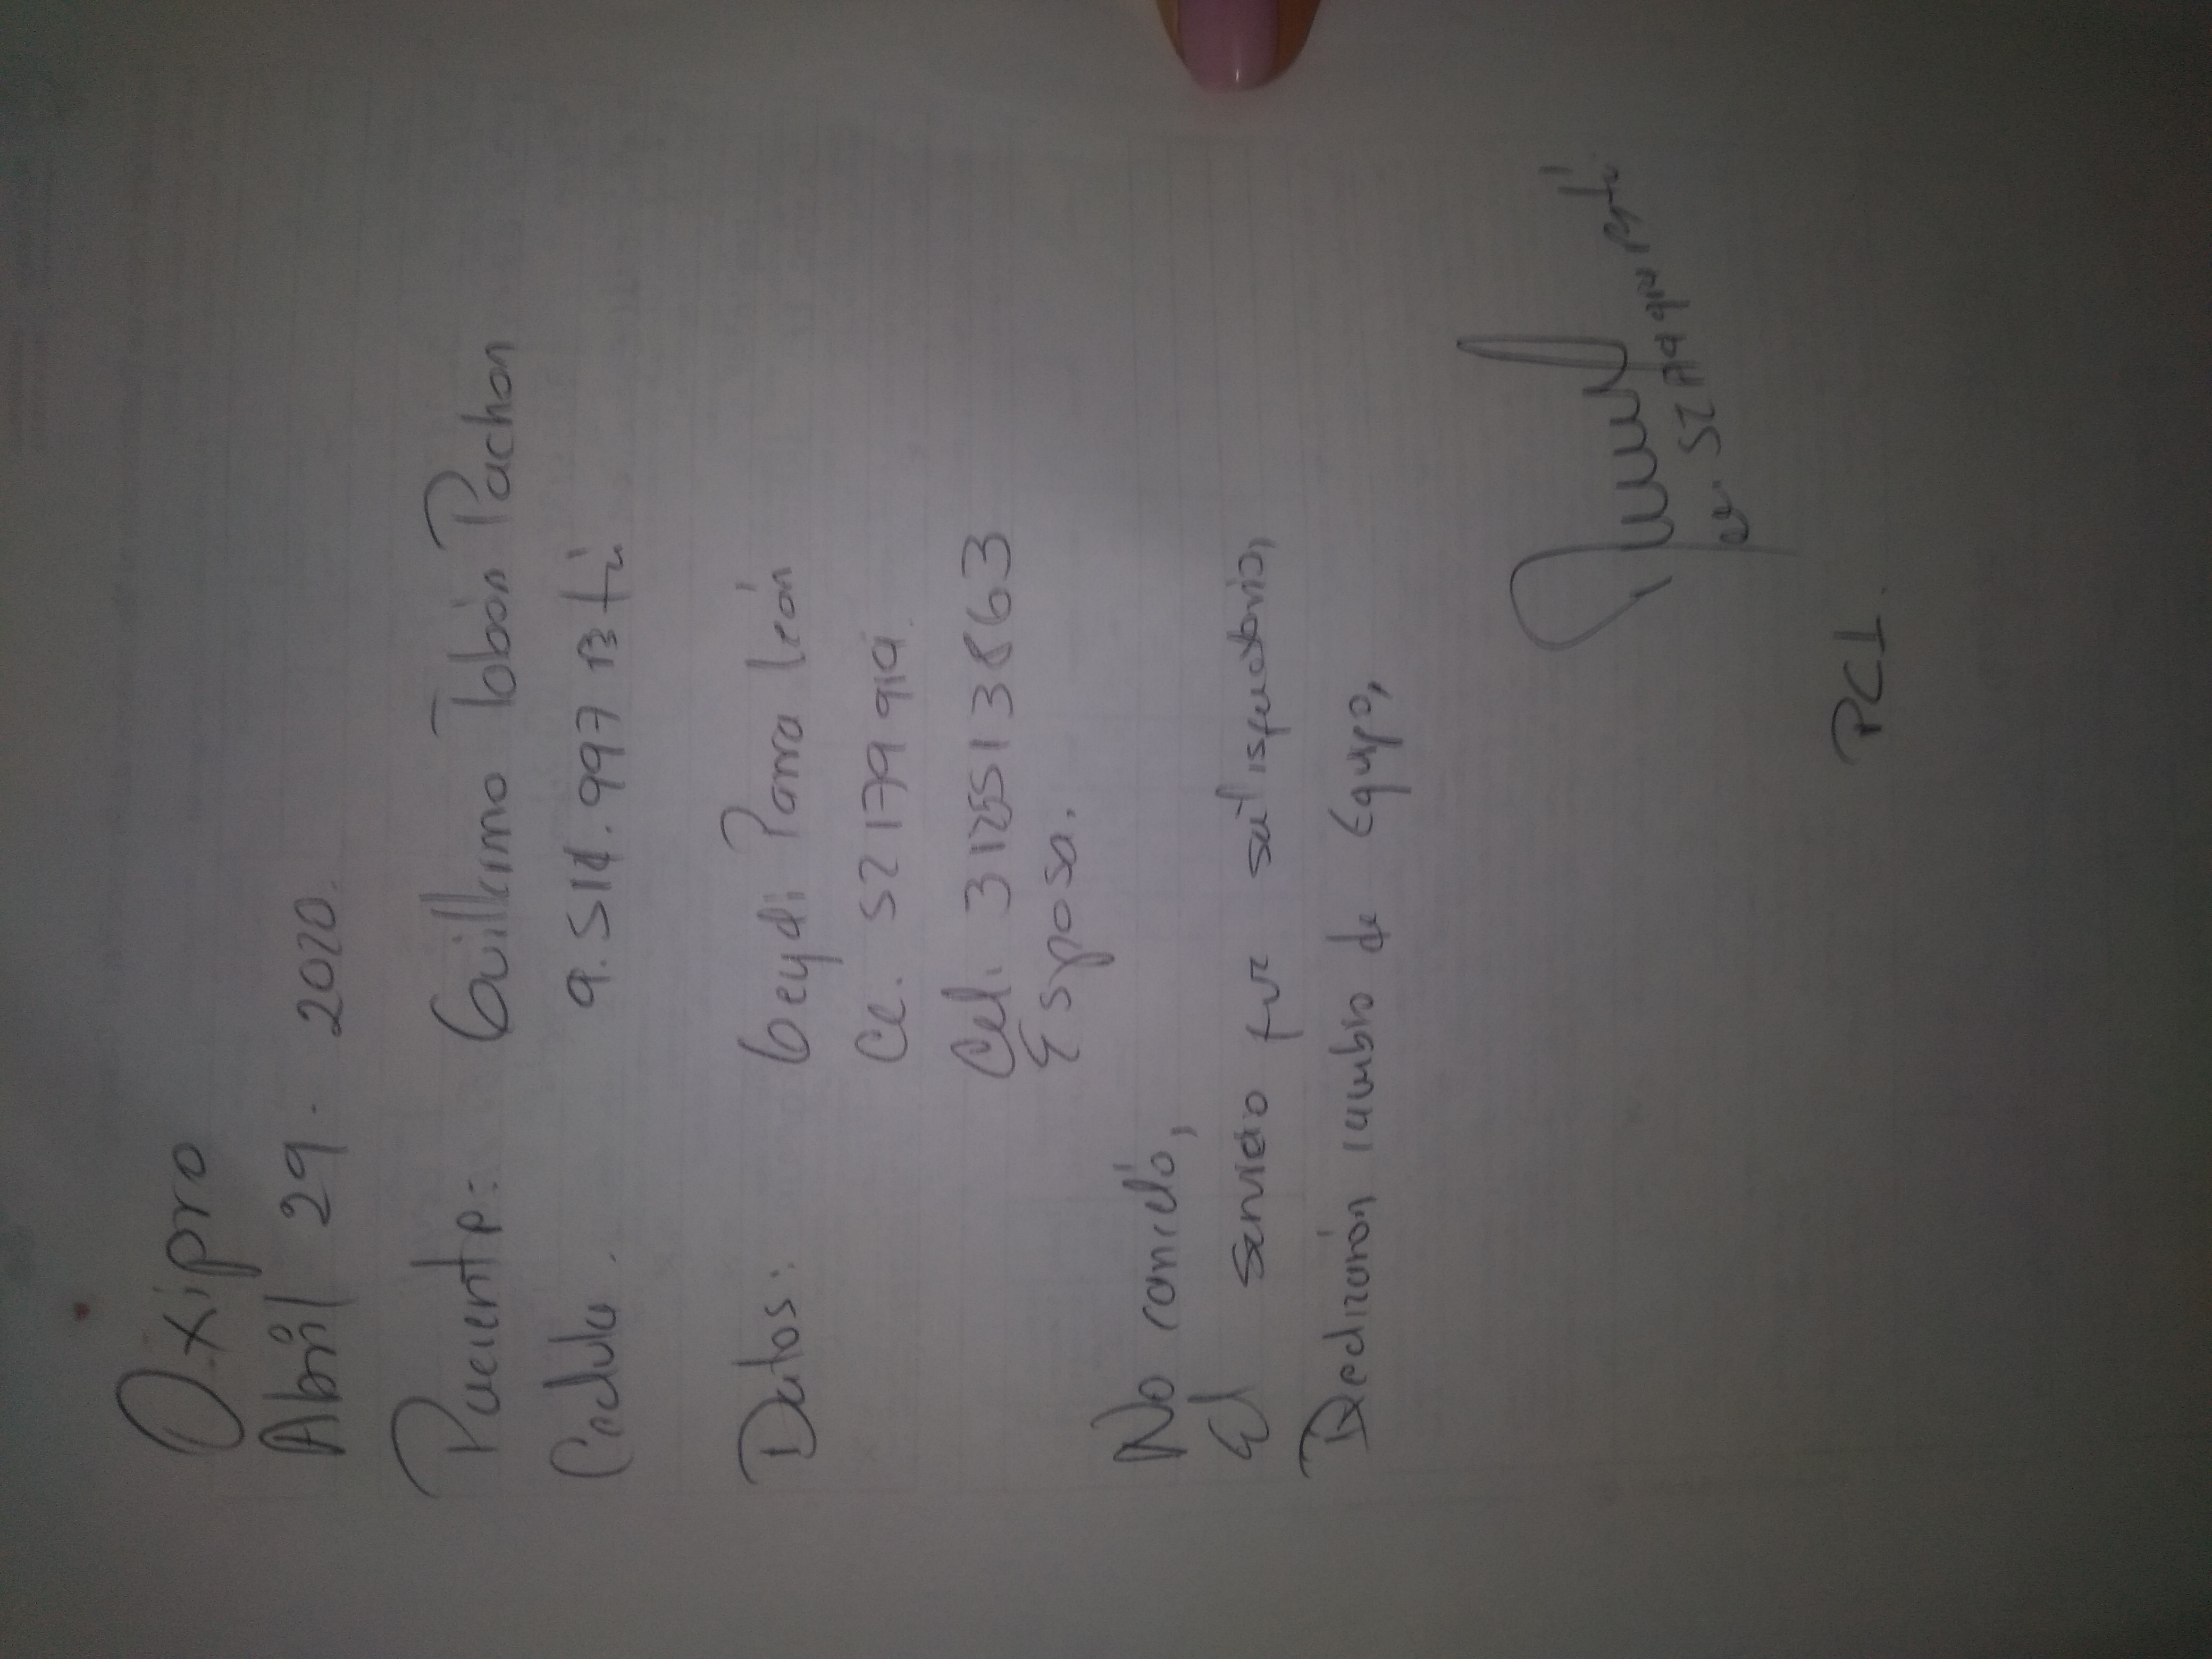 Oxipro
Abril 29. 2020.
Paciente: Guillermo Tobón Pachon
Cedula. 9.511.997
Datos: Geydi Parra León
CC. 52179919.
Cel. 3125513863
Esposa.
No canceló,
El servicio fue satisfactorio,
Realizaron cambio de Equipo,
cc. 52179919
PCI.